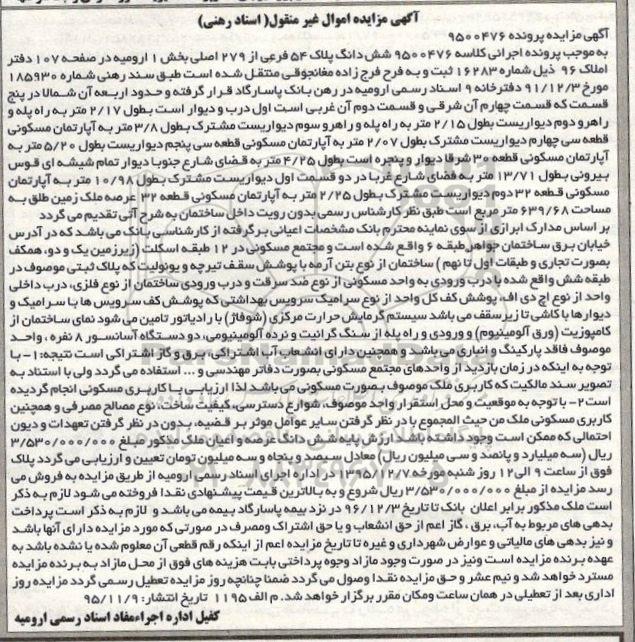 آگهی مزایده اموال غیر منقول( اسناد رهنی)
آگهی مزایده پرونده ۹۵۰۰۴۷۶
به موجب پرونده اجرائی کلاسه ۹۵۰۰۴۷۶ شش دانگ پلاک ۵۴ فرعی از ۲۷۹ اصلی بخش ۱ ارومیه در صفحه ۱۰۷ دفتر
املاک ۹۶ ذیل شماره ۱۶۲۸۳ ثبت و به فرح فرح زاده مغانجوقی منتقل شده است طبق سند رهنی شماره ۱۸۵۹۳۰
مورخ ۹۱/۱۲/۳ دفترخانه ۹ اسناد رسمی ارومیه در رهن بانک پاسارگاد قرار گرفته و حدود اربعه آن شمالا در پنج
قسمت که قسمت چهارم آن شرقی و قسمت دوم آن غربی است اول درب و دیوار است بطول ۲/۱۷ متر به راه پله و
راهرو دوم دیواریست بطول ۲/۱۵ متر به راه پله و راهرو سوم دیواریست مشترک بطول ۳/۸ متر به آپارتمان مسکونی
قطعه سی چهارم دیواریست مشترک بطول ۲/۰۷ متر به آپارتمان مسکونی قطعه سی پنجم دیواریست بطول ۵/۲۰ متر به
آپارتمان مسکونی قطعه ۳۰ شرقا دیوار و پنجره است بطول ۴/۲۵ متر به فضای شارع جنوبا دیوار تمام شیشه ای قوس
بیرونی بطول ۱۳/۷۱ متر به فضای شارع غربا در دو قسمت اول دیواریست مشترک بطول ۱۰/۹۸ متر به آپارتمان
مسکونی قطعه ۳۲ دوم دیواریست مشترک بطول ۲/۲۵ متر به آپارتمان مسکونی قطعه ۳۲ عرصه ملک زمین طلق به
مساحت ۶۳۹/۶۸ متر مربع است طبق نظر کارشناس رسمی بدون رویت داخل ساختمان به شرح آتی تقدیم می گردد
بر اساس مدارک ابرازی از سوی نماینده محترم بانک مشخصات اعیانی برگرفته از کارشناسی بانک می باشد که در آدرس
خیابان برق ساختمان جواهر طبقه ۶ واقع شده است و مجتمع مسکونی در ۱۲ طبقه اسکلت (زیرزمین یک و دو، همکف
بصورت تجاری و طبقات اول تا نهم ) ساختمان از نوع بتن آرمه با پوشش سقف تیرچه و یونولیت که پلاک ثبتی موصوف در
طبقه شش واقع شده با درب ورودی به واحد مسکونی از نوع ضد سرقت و درب ورودی ساختمان از نوع فلزی، درب داخلی
واحد از نوع اچ دی اف، پوشش کف کل واحد از نوع سرامیک سرویس بهداشتی که پوشش کف سرویس ها با سرامیک و
دیوارها با کاشی تا زیر سقف می باشد سیستم گرمایش حرارت مرکزی (شوفاژ) با رادیاتور تامین می شود نمای ساختمان از
کامپوزیت (ورق آلومینیوم) و ورودی و راه پله از سنگ گرانیت و نرده آلومینیومی، دو دستگاه آسانسور ۸ نفره ، واحد
موصوف فاقد پارکینگ و انباری می باشد و همچنین دارای انشعاب آب اشتراکی، برق و گاز اشتراکی است نتیجه: ۱- با
توجه به اینکه در زمان بازدید از واحدهای مجتمع مسکونی بصورت دفاتر مهندسی و ... استفاده می گردد ولی با استناد به
تصویر سند مالکیت که کاربری ملک موصوف بصورت مسکونی می باشد لذا ارزیابی با کاربری مسکونی انجام گردیده
است ۲- با توجه به موقعیت و محل استقرار واحد موصوف، شوارع دسترسی، کیفیت ساخت، نوع مصالح مصرفی و همچنین
کاربری مسکونی ملک من حیث المجموع با در نظر گرفتن سایر عوامل موثر بر قضیه، بدون در نظر گرفتن تعهدات و دیون
احتمالی که ممکن است وجود داشته باشد، ارزش پایه شش دانگ عرصه و اعیان ملک مذکور مبلغ ۳/۵۳۰/۰۰۰/۰۰۰
ریال (سه میلیارد و پانصد و سی میلیون ریال) معادل سیصد و پنجاه و سه میلیون تومان تعیین و ارزیابی می گردد پلاک
فوق از ساعت ۹ الی ۱۲ روز شنبه مورخه ۱۳۹۵/۱۲/۷ در اداره اجرای اسناد رسمی ارومیه از طریق مزایده به فروش می
رسد مزایده از مبلغ ۳/۵۳۰/۰۰۰/۰۰۰ ریال شروع و به بالاترین قیمت پیشنهادی نقدا فروخته می شود لازم به ذکر
است ملک مذکور برابر اعلان بانک تا تاریخ ۹۶/۱۲/۳ در نزد بیمه پاسارگاد بیمه می باشد و لازم به ذکر است پرداخت
بدهی های مربوط به آب، برق ، گاز اعم از حق انشعاب و یا حق اشتراک ومصرف در صورتی که مورد مزایده دارای آنها باشد
و نیز بدهی های مالیاتی و عوارض شهرداری و غیره تا تاریخ مزایده اعم از اینکه رقم قطعی آن معلوم شده یا نشده باشد به
عهده برنده مزایده است ونیز در صورت وجود مازاد وجوه پرداختی بابت هزینه های فوق از محل مازاد به برنده مزایده
مسترد خواهد شد و نیم عشر و حق مزایده نقدا وصول می گردد ضمنا چنانچه روز مزایده تعطیل رسمی گردد مزایده روز
اداری بعد از تعطیلی در همان ساعت ومکان مقرر برگزار خواهد شد. م الف ۱۱۹۵ تاریخ انتشار: ۹۵/۱۱/۹
کفیل اداره اجراءمفاد اسناد رسمی ارومیه